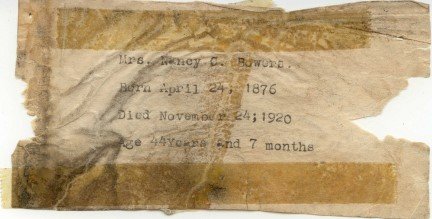 Mrs. Nancy C. Bowers.
Born April 24; 1876
Died November 24;1920
Age 44Years and 7 months